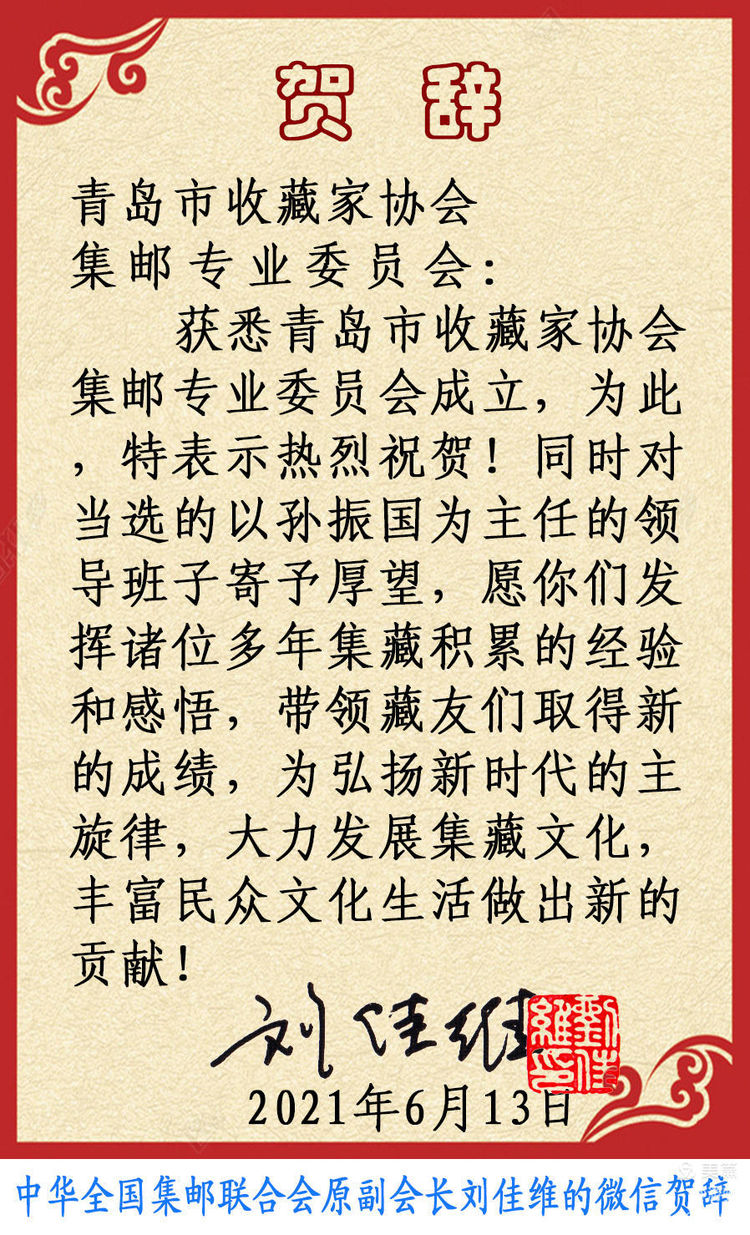 贺 辞
青岛市收藏家协会
集邮专业委员会：
获悉青岛市收藏家协会
集邮专业委员会成立，为此
，特表示热烈祝贺！同时对
当选的以孙振国为主任的领
导班子寄予厚望，愿你们发
挥诸位多年集藏积累的经验
和感悟，带领藏友们取得新
的成绩，为弘扬新时代的主
旋律，大力发展集藏文化，
丰富民众文化生活做出新的
贡献！
刘佳维
2021年6月13日
中华全国集邮联合会原副会长刘佳维的微信贺辞